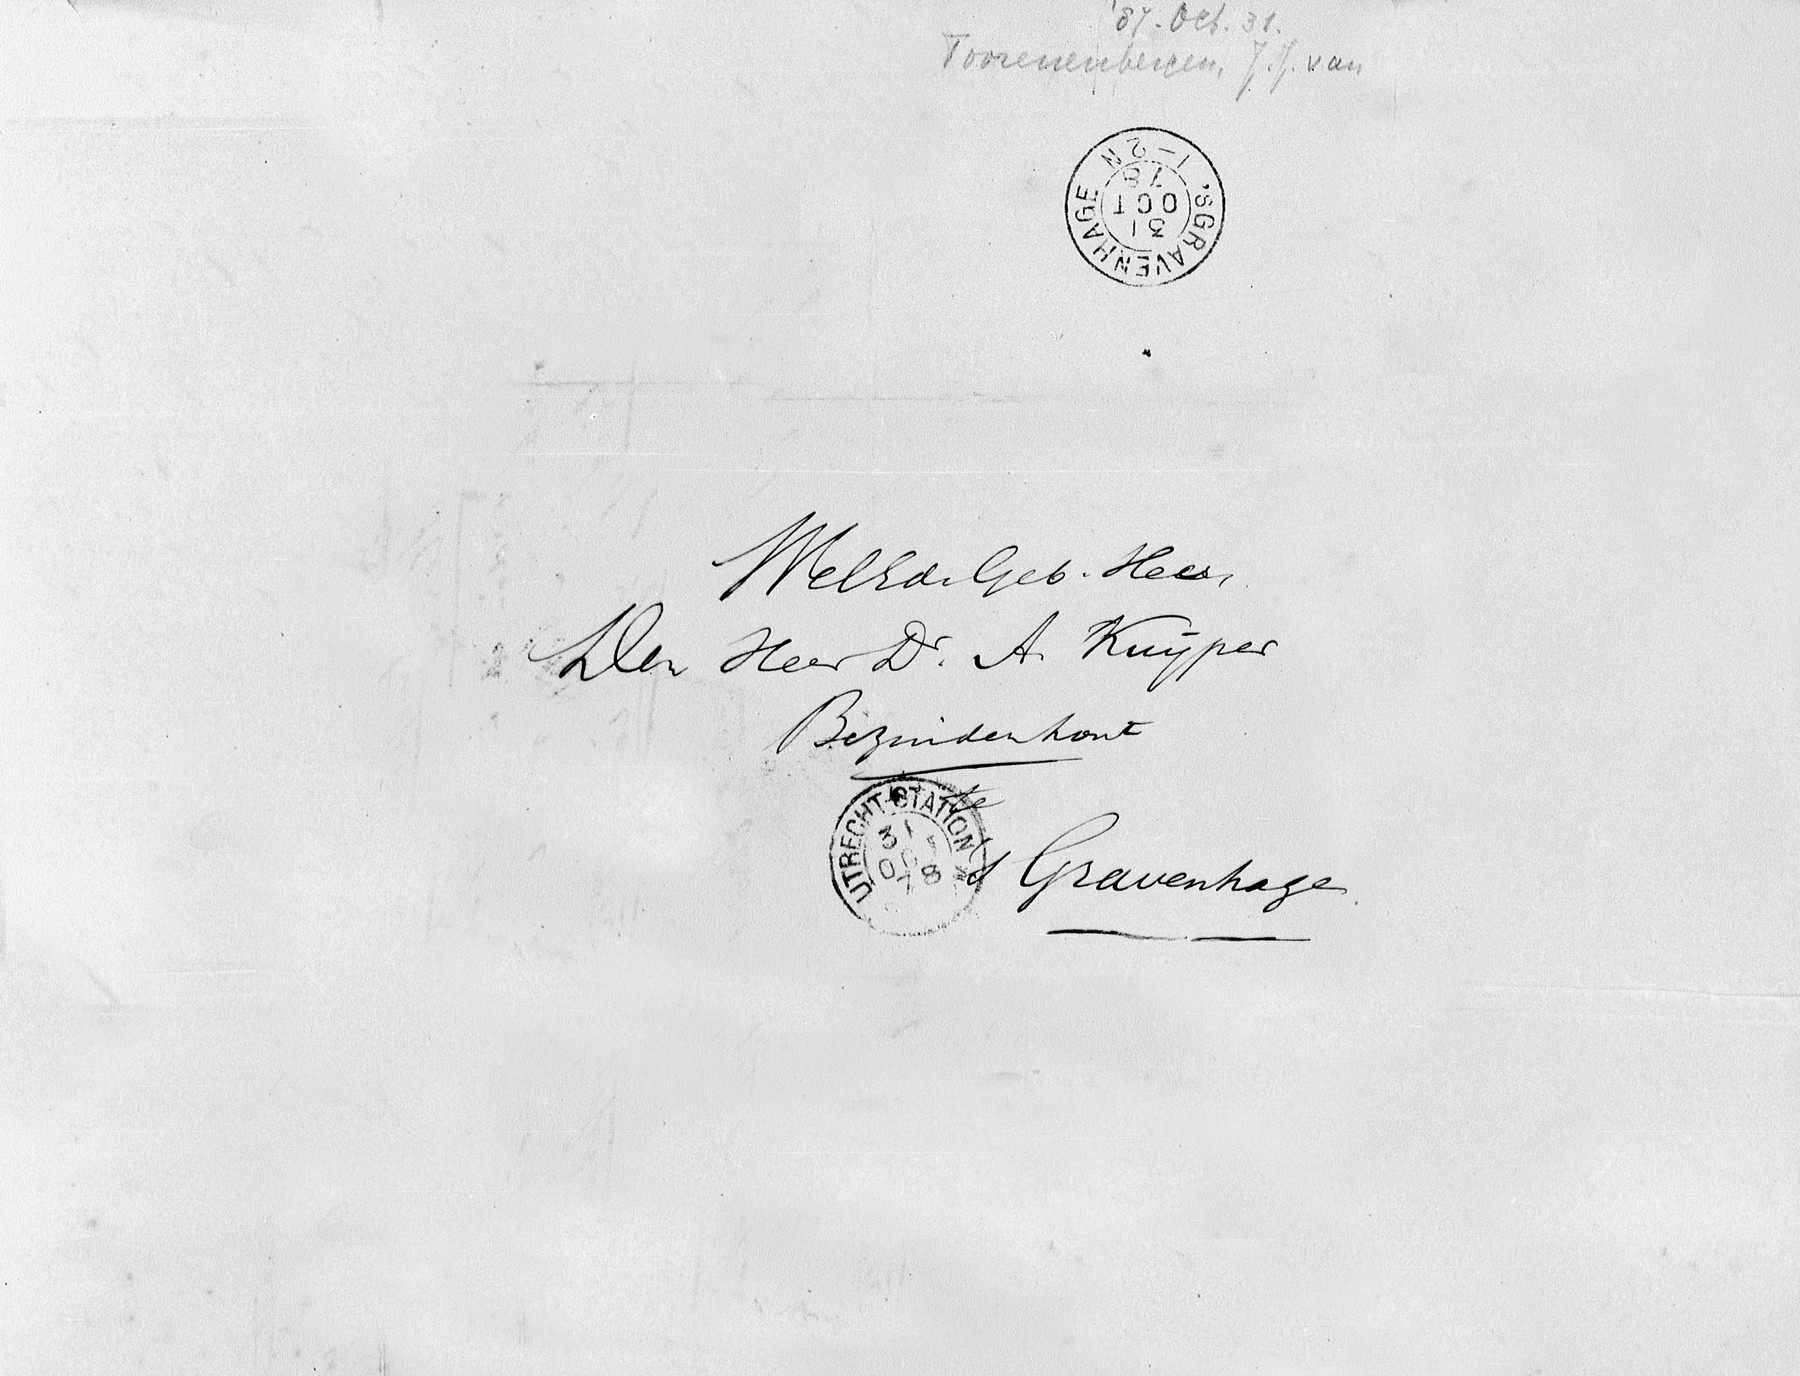 '87. Oct. 31.
Toorenenbergen, J.J. van
'SGRAVENHAGE
1-2N
31
OCT
78
WelEd. Geb. Heer,
Den Heer Dr. A. Kuÿper
Bezuidenhout
te
's Gravenhage
UTRECHT-STATION
31
OCT
78